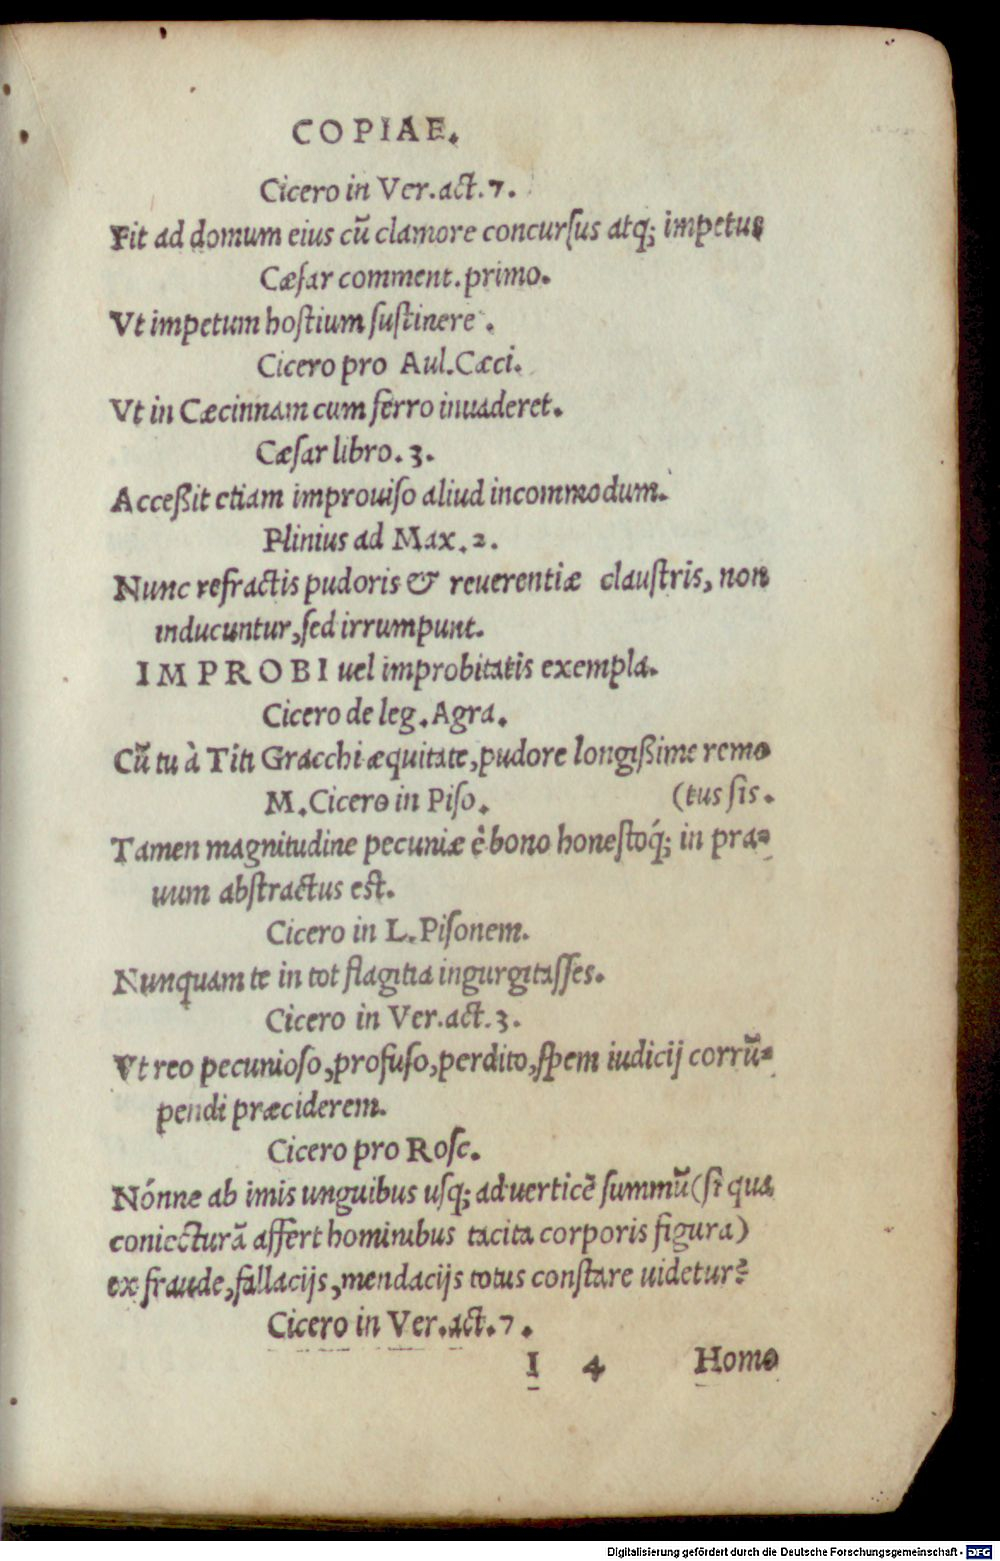 COPIAE.
Cicero in Ver.act.7.
Fit ad domum eius cũ clamore concurſus atq; impetus
Cæſar comment.primo.
Vt impetum hoſtium ſuſtinere.
Cicero pro Aul.Cæci.
Vt in Cæcinnam cum ferro inuaderet.
Cæſar libro.3.
Acceßit etiam improuiſo aliud incommodum.
Plinius ad Max.2.
Nunc refractis pudoris & reuerentiæ clauſtris, non
inducuntur,ſed irrumpunt.
IMPROBI uel improbitatis exempla.
Cicero de leg.Agra.
Cũ tu à Titi Gracchi æquitate,pudore longißime remo
M.Cicero in Piſo. (tus ſis.
Tamen magnitudine pecuniæ è bono honeſtoq́; in pra-
uum abſtractus eſt.
Cicero in L.Piſonem.
Nunquam te in tot flagitia ingurgitaſſes.
Cicero in Ver.act.3.
Vt reo pecunioſo,profuſo,perdito,ſpem iudicij corrũ-
pendi præciderem.
Cicero pro Roſc.
Nónne ab imis unguibus uſq; ad uerticẽ ſummũ(ſi quã
coniecturã affert hominibus tacita corporis figura)
ex fraude,fallacijs,mendacijs totus conſtare uidetur?
Cicero in Ver.act.7.
I 4 Homo
Digitalisierung gefördert durch die Deutsche Forschungsgemeinschaft - DFG